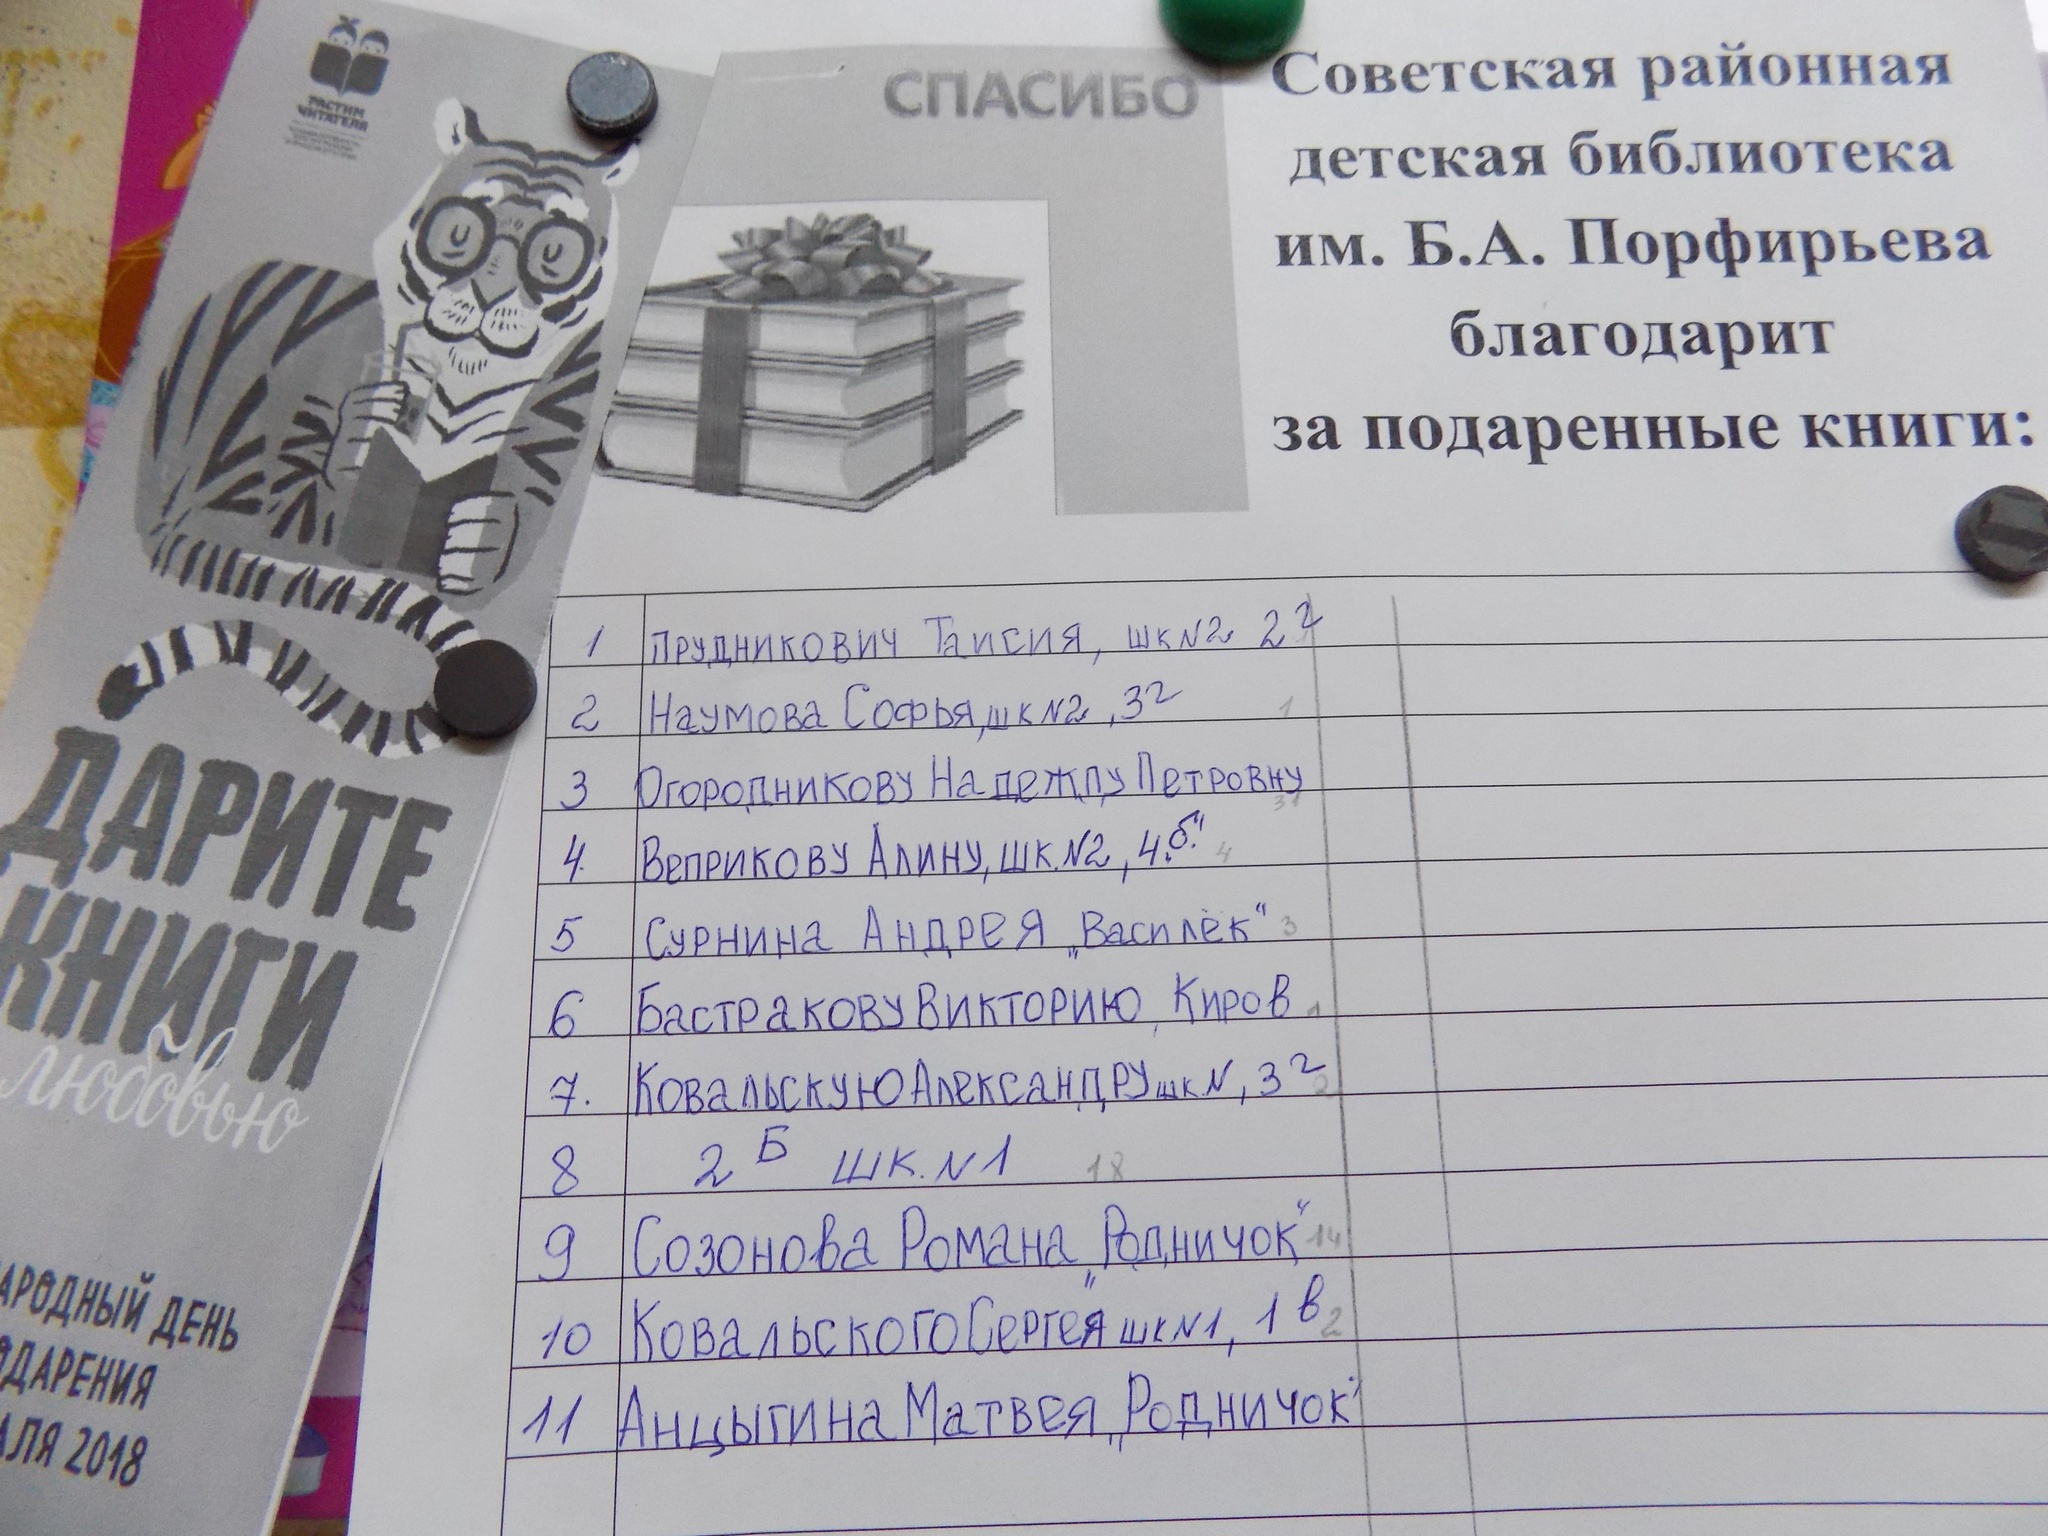 РАСТИМ
ЧИТАТЕЛЯ
СПАСИБО
Советская районная
детская библиотека
им. Б.А. Порфирьева
благодарит
за подаренные книги:
ДАРИТЕ
КНИГИ
любовью
АРОДНЫЙ ДЕНЬ
ОДАРЕНИЯ
АЛЯ 2018
1 Прудникович Таисия, шк N2 2 г
2 Наумова Софья, шк N2, 3 г 1
3 Огородникову Надежду Петровну 31
4. Веприкову Алину, шк. N2, 4 „б" 4
5 Сурнина Андрея „Василёк" 3
6 Бастракову Викторию, Киров 1
7. Ковальскую Александру шк. N, 3 г 2
8 2 Б шк. N 1 18
9 Созонова Романа „Родничок" 14
10 Ковальского Сергея шк N1, 1 в 2
11 Анцыгина Матвея „Родничок"